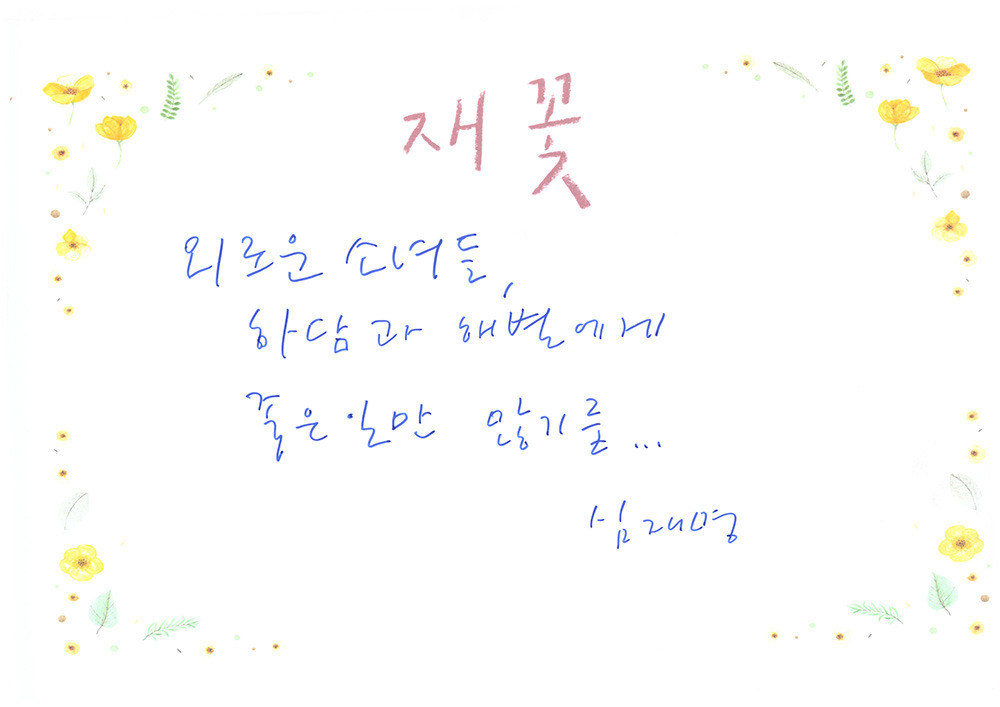 재꽃
외로운 소녀들,
하담과 해별에게
좋은 일만 많기를...
심재명